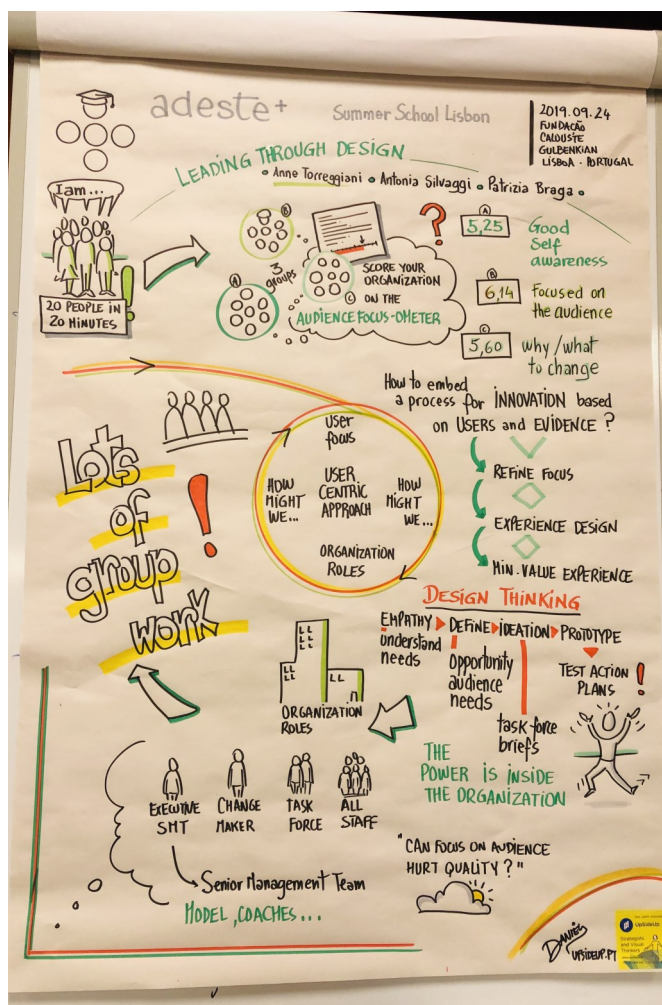 adeste+
Summer School Lisbon
2019.09.24
FUNDAÇÃO
CALOUSTE
GULBENKIAN
LISBOA · PORTUGAL
LEADING THROUGH DESIGN
• Anne Torreggiani • Antonia Silvaggi • Patrizia Braga •
I am...
20 PEOPLE IN
20 MINUTES
!
B
A
3
groups
SCORE YOUR
ORGANIZATION
C ON THE
AUDIENCE FOCUS-OMETER
?
A
5,25
Good
Self
awareness
B
6,14
Focused on
the audience
C
5,60
why/what
to change
How to embed
a process for INNOVATION based
on USERS and EVIDENCE ?
REFINE FOCUS
EXPERIENCE DESIGN
MIN. VALUE EXPERIENCE
User
focus
HOW
MIGHT
WE...
USER
CENTRIC
APPROACH
HOW
MIGHT
WE...
ORGANIZATION
ROLES
Lots
of
group
work
!
DESIGN THINKING
EMPATHY DEFINE IDEATION PROTOTYPE
understand
needs
opportunity
audience
needs
task force
briefs
TEST ACTION
PLANS
!
ORGANIZATION
ROLES
THE
POWER IS INSIDE
THE ORGANIZATION
EXECUTIVE
SMT
CHANGE
MAKER
TASK
FORCE
ALL
STAFF
Senior Management Team
MODEL, COACHES...
"CAN FOCUS ON AUDIENCE
HURT QUALITY?"
UPSIDEUP.PT
UpSideUp
Strategists
and Visual
Thinkers